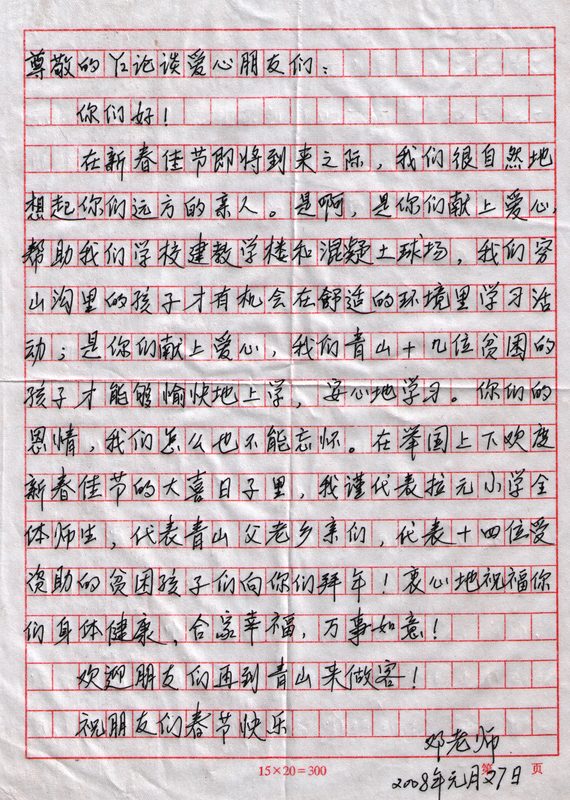 尊敬的Y2论谈爱心朋友们：
你们好！
在新春佳节即将到来之际，我们很自然地
想起你们远方的亲人。是啊，是你们献上爱心，
帮助我们学校建教学楼和混凝土球场，我们穷
山沟里的孩子才有机会在舒适的环境里学习活
动；是你们献上爱心，我们青山十几位贫困的
孩子才能够愉快地上学，安心地学习。你们的
恩情，我们怎么也不能忘怀。在举国上下欢度
新春佳节的大喜日子里，我谨代表拉元小学全
体师生，代表青山父老乡亲们，代表十四位受
资助的贫困孩子们向你们拜年！衷心地祝福你
们身体健康，合家幸福，万事如意！
欢迎朋友们再到青山来做客！
祝朋友们春节快乐
邓老师
15×20=300 第 页
2008年元月27日